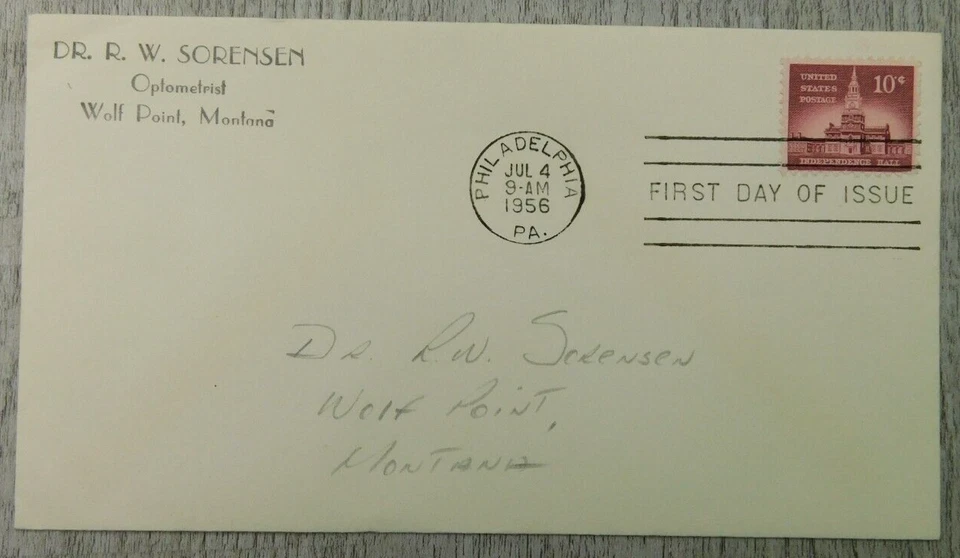 DR. R. W. SORENSEN
Optometrist
Wolf Point, Montana
UNITED
STATES
POSTAGE
10¢
INDEPENDENCE HALL
PHILADELPHIA
JUL 4
9-AM
1956
PA.
FIRST DAY OF ISSUE
Dr. R.W. Sorensen
Wolf Point,
Montana